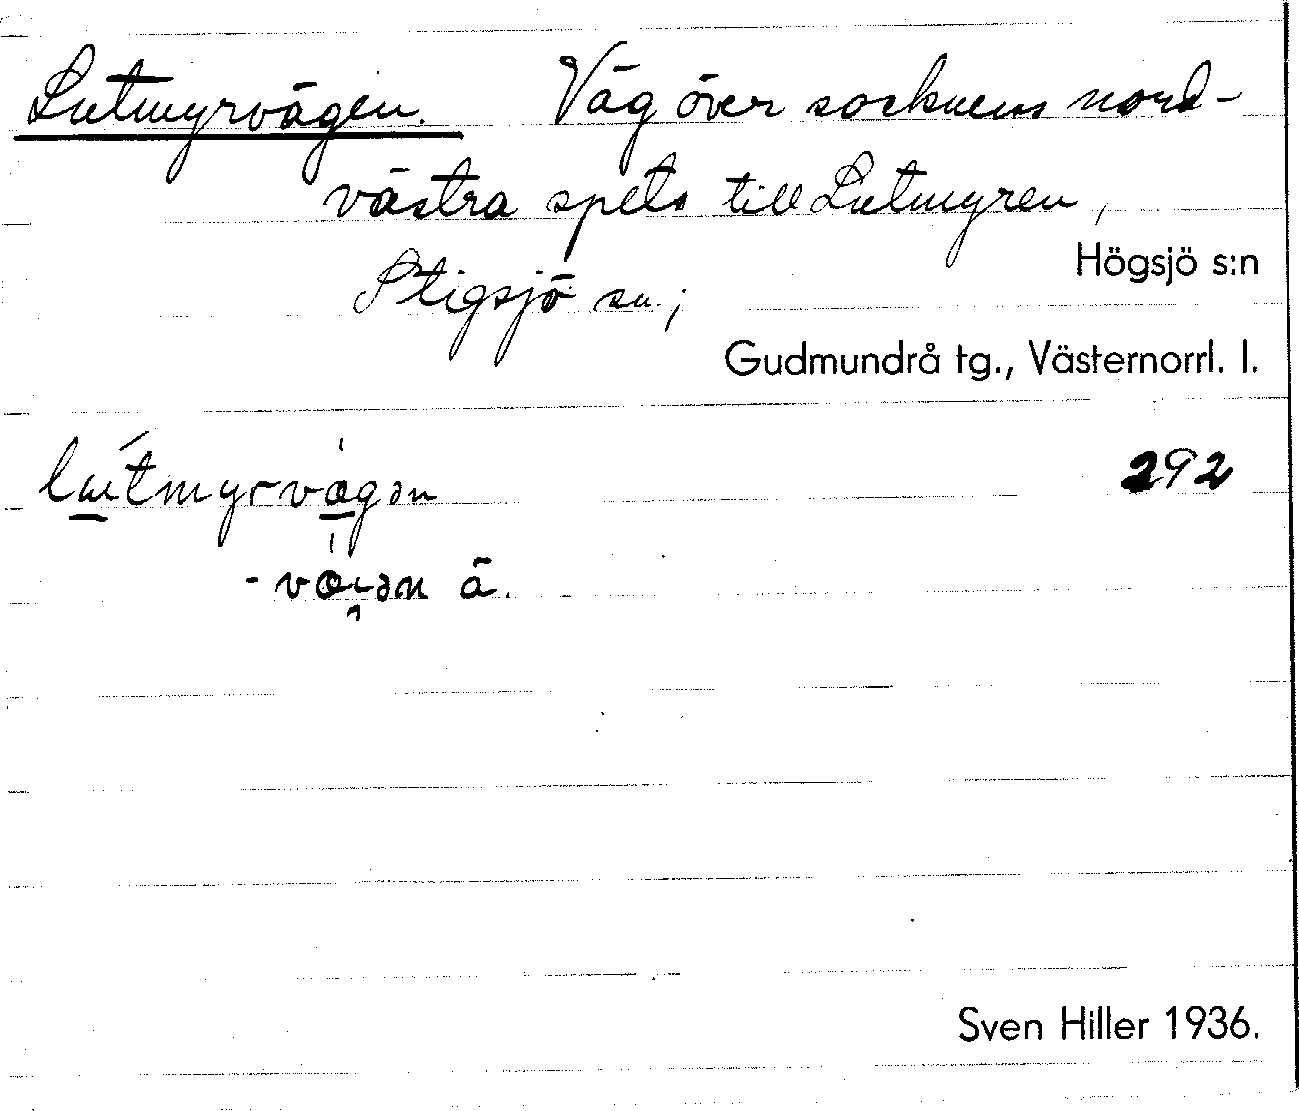 Lutmyrvägen. Väg över socknens nord-
västra spets till Lutmyren,
Stigsjö sn.;
Högsjö s:n
Gudmundrå tg., Västernorrl. l.
292
ä.
Sven Hiller 1936.